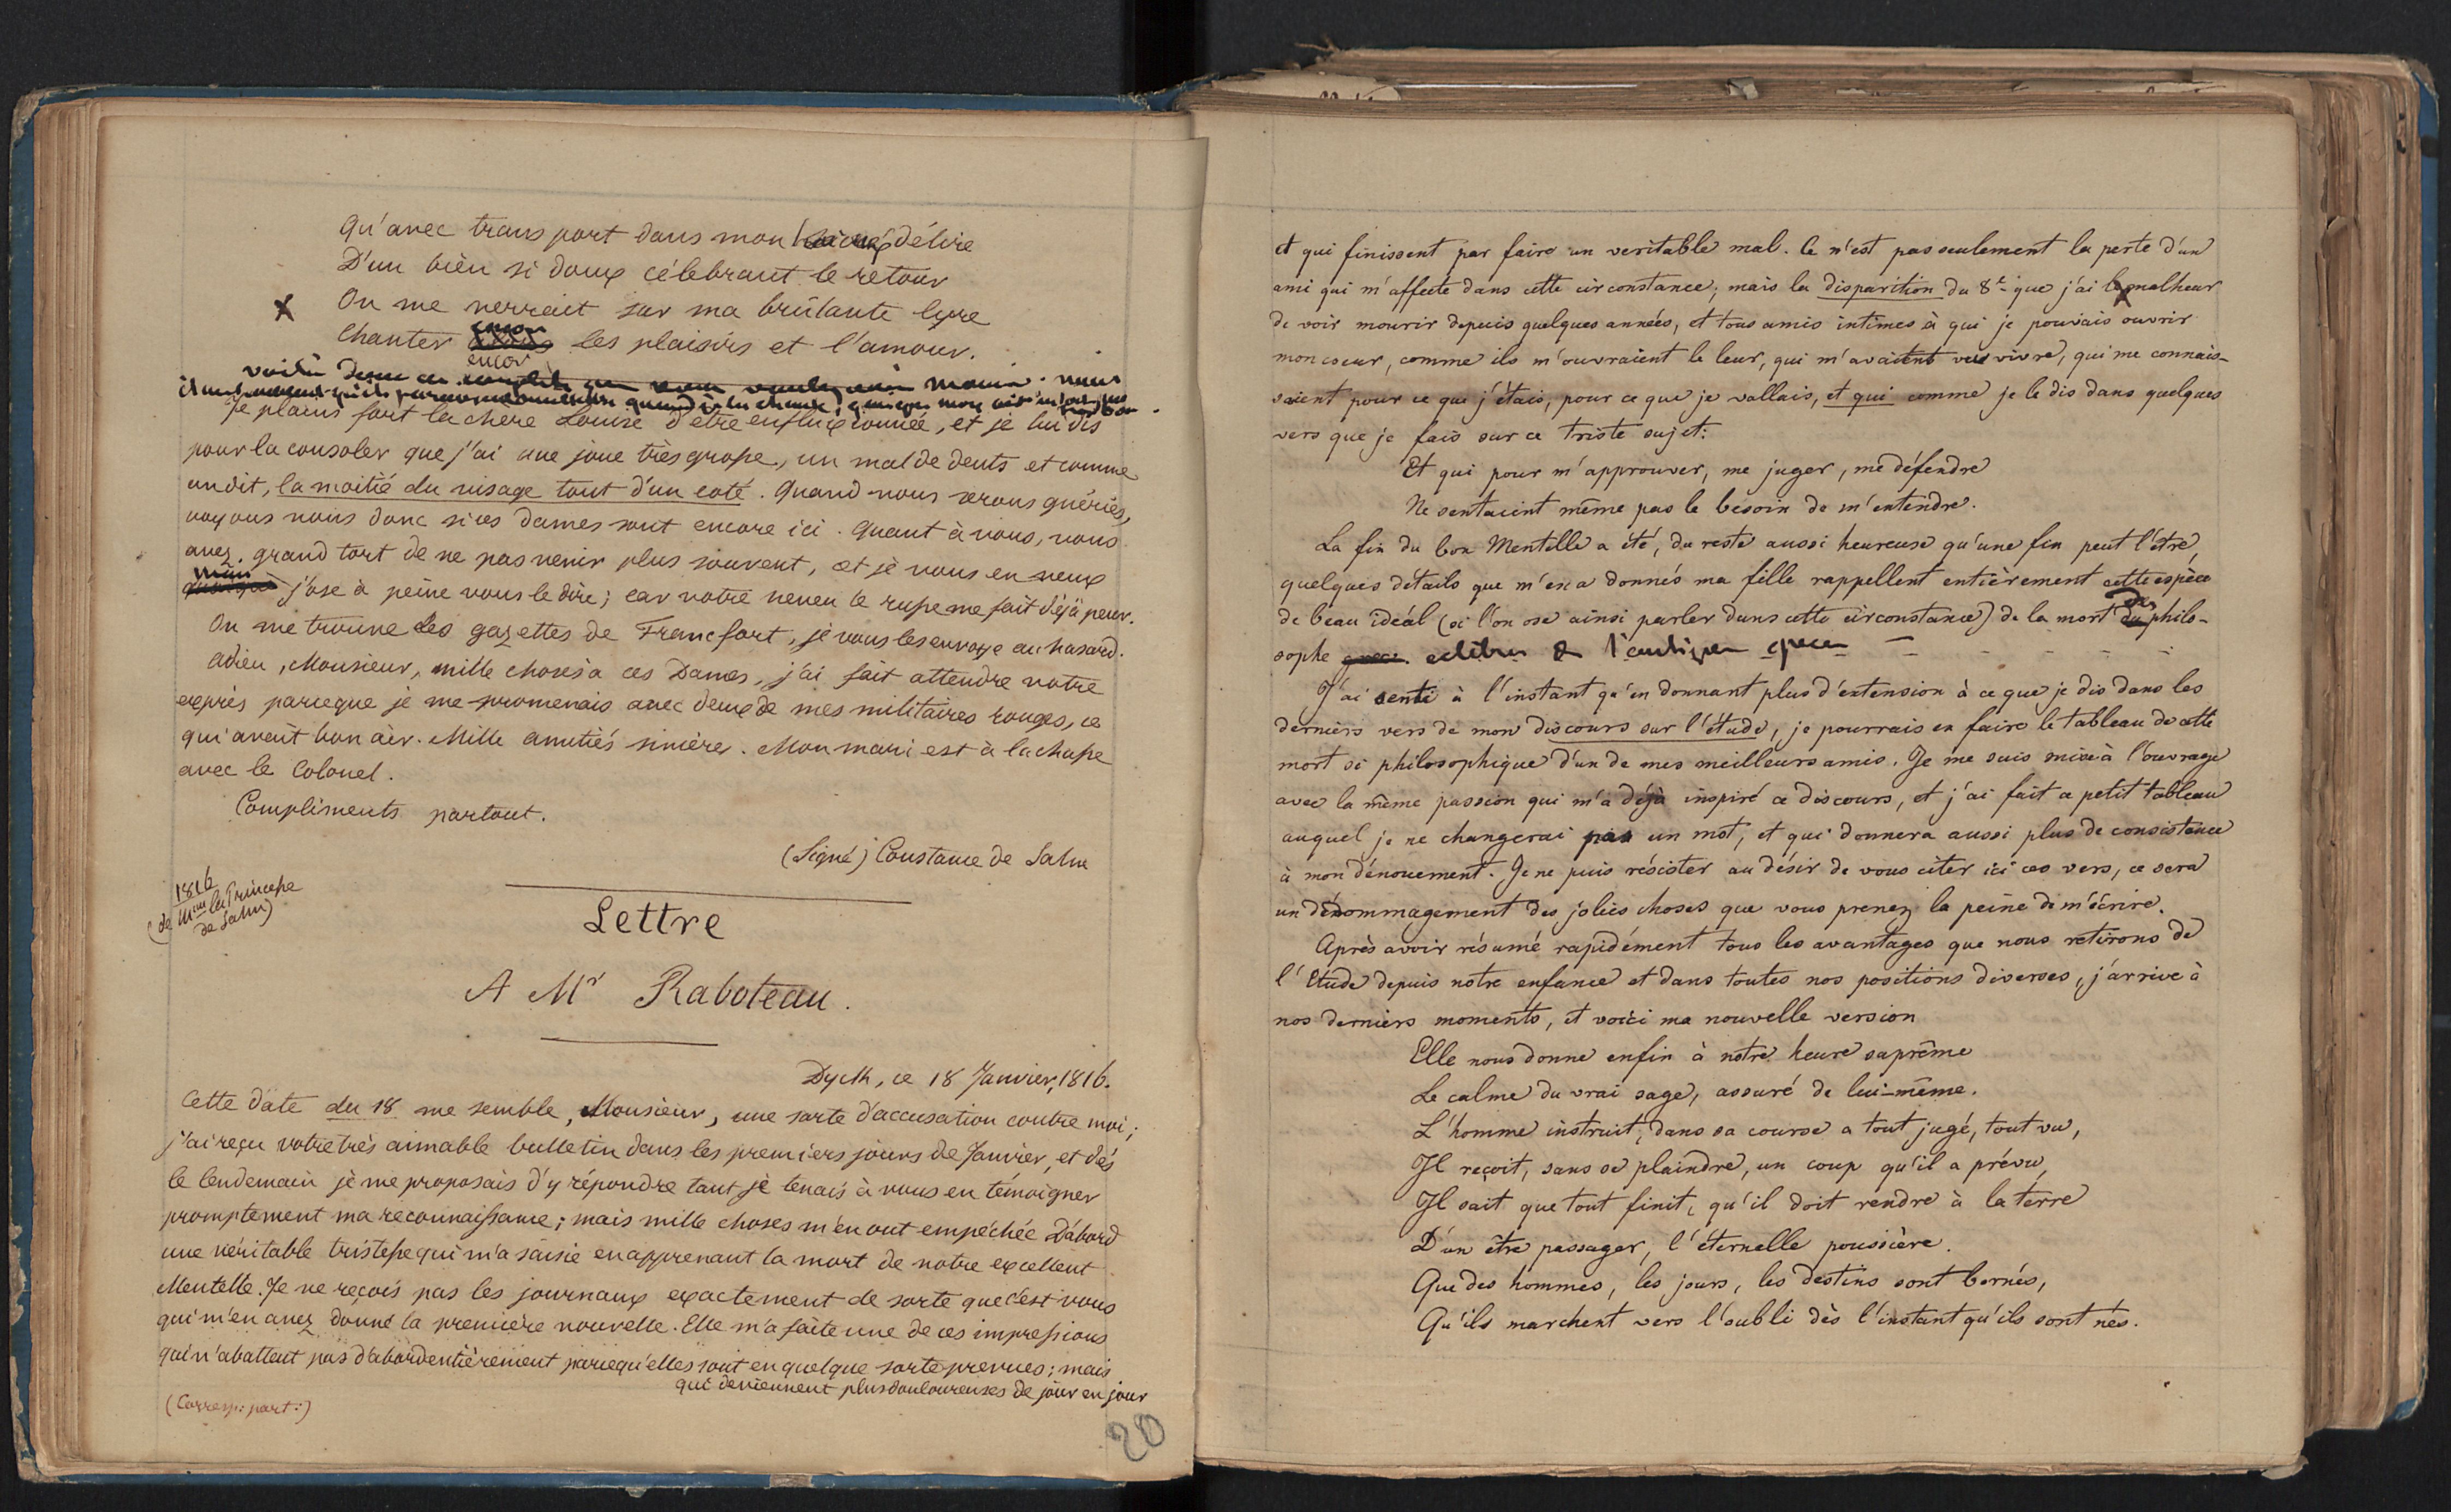 Qu'avec transport dans mon délire
D'un bien si doux célebrant le retour
X On me verrait sur ma brûlante lyre
Chanter encor les plaisirs et l'amour.
encor
voilà donc ce
Je plains fort la chere Louise d'être enfluxionnée, et je lui dis
pour la consoler que j'ai une joue très grosse, un mal de dents et comme
on dit, la moitié du visage tout d'un coté. Quand nous serons guéries,
voyons nous donc si ces dames sont encore ici. Quant à vous, vous
avez, grand tort de ne pas venir plus souvent, et je vous en veux
mais
quoique j'ose à peine vous le dire; car votre neveu le russe me fait déjà peur.
On me trouve des gazettes de Francfort, je vous les envoye au hasard.
Adieu, Monsieur, mille choses à ces Dames, j'ai fait attendre votre
exprès parceque je me promenais avec deux de mes militaires rouges, ce
qui avait bon air. Mille amitiés sincère. Mon mari est à la chasse
avec le Colonel.
Compliments partout.
(Signé) Constance de Salm
1816
(de Mme la Princesse
de Salm)
Lettre
A Mr Raboteau.
Dyck, ce 18 Janvier, 1816.
Cette date du 18 me semble, Monsieur, une sorte d'accusation contre moi;
j'ai reçu votre très aimable bulletin dans les premiers jours de Janvier, et dès
le lendemain je me proposais d'y répondre tant je tenais à vous en témoigner
promptement ma reconnaissance; mais mille choses m'en ont empéchée D'abord
une véritable tristesse qui m'a saisie en apprenant la mort de notre excellent
Mentelle. Je ne reçois pas les journaux exactement de sorte que c'est vous
qui m'en avez donné la première nouvelle. Elle m'a faite une de ces impressions
qui n'abattent pas d'abord entièrement parcequ'elles sont en quelque sorte prevues; mais
qui deviennent plus douloureuses de jour en jour
(Corresp: part:)
20
et qui finissent par faire un veritable mal. Ce n'est pas seulement la perte d'un
ami qui m'affecte dans cette circonstance; mais la disparition du 8e que j'ai le malheur
de voir mourir depuis quelques années, et tous amis intimes à qui je pouvais ouvrir
mon coeur, comme ils m'ouvraient le leur, qui m'avaient vu vivre, qui me connais-
saient pour ce que j'étais, pour ce que je vallais, et qui comme je le dis dans quelques
vers que je fais sur ce triste sujet:
Et qui pour m'approuver, me juger, me défendre
Ne sentaient même pas le besoin de m'entendre.
La fin du bon Mentelle a été, du reste aussi heureuse qu'une fin peut l'être,
quelques détails que m'en a donnés ma fille rappellent entièrement cette espèce
de beau idéal (si l'on ose ainsi parler dans cette circonstance) de la mort du philo-
sophe grec. celebre de l'antique grece
J'ai senti à l'instant qu'en donnant plus d'extension à ce que je dis dans les
derniers vers de mon discours sur l'étude, je pourrais en faire le tableau de cette
mort si philosophique d'un de mes meilleurs amis. Je me suis mise à l'ouvrage
avec la même passion qui m'a déjà inspiré ce discours, et j'ai fait ce petit tableau
auquel je ne changerai pas un mot, et qui donnera aussi plus de consistance
à mon dénouement. Je ne puis résister au désir de vous citer ici ces vers, ce sera
un dédommagement des jolies choses que vous prenez la peine de m'écrire.
Après avoir résumé rapidément tous les avantages que nous retirons de
l'Etude depuis notre enfance et dans toutes nos positions diverses, j'arrive à
nos derniers moments, et voici ma nouvelle version
Elle nous donne enfin à notre heure suprême
Le calme du vrai sage, assuré de lui-même.
L'homme instruit, dans sa course a tout jugé, tout vu,
Il reçoit, sans se plaindre, un coup qu'il a prévu,
Il sait que tout finit, qu'il doit rendre à la terre
D'un être passager, l'éternelle poussière.
Que des hommes, les jours, les destins sont bornés,
Qu'ils marchent vers l'oubli dès l'instant qu'ils sont nés.